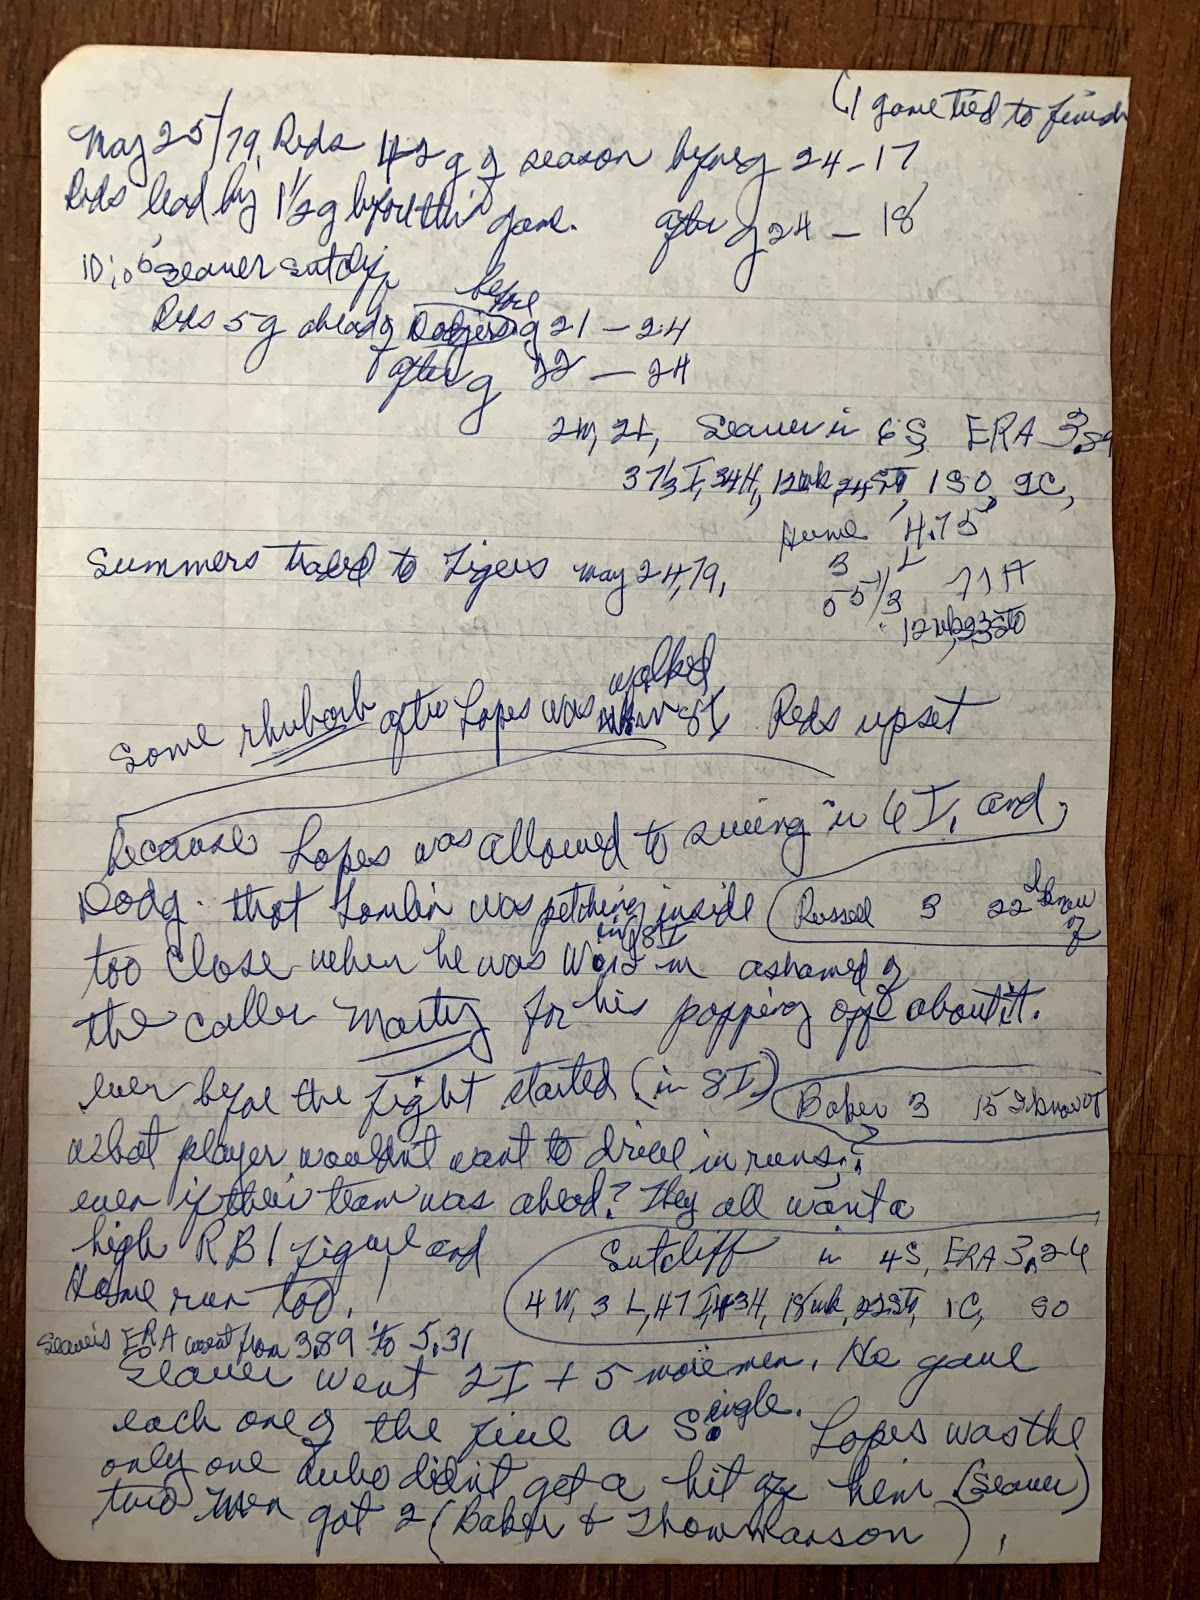 (1 game tied to finish
May 25/79, Reds 42 g of season before g 24-17
Reds lead by 1 1/2 g before this game. after g 24 - 18
10:06 Seaver Sutcliff
before
Reds 5 g ahead of Dodgers. g 21 - 24
after g 22 - 24
2W, 2L, Seaver in 6S ERA 3.89
37 1/3 I, 34H, 12wk, 24 STO, 1 SO, 2C,
Home 4.75
Summers traded to Tigers May 24, 79, 3 L
55 1/3 71 H
12wk, 23 STO
walked
Some rhubarb after Lopes was in 8I Reds upset
because Lopes was allowed to swing in 6 I, and,
Dodg. that Tomlin was pitching inside (Russell 3 22 I know of
in 8 I
too close when he was ashamed of
the caller Marty for his popping off about it.
ever before the fight started (in 8 I) Baker 3 15 I know of
what player wouldn't want to drive in runs,
even if their team was ahead? They all want a
high RBI figure and Sutcliff in 4S, ERA 3.24
Home run too! 4 W, 3 L, 47 I, 43H, 18wk, 22 STO, 1C, SO
Seaver's ERA went from 3.89 to 5.31
Seaver went 2 I + 5 more men. He gave
each one of the five a Single. Lopes was the
only one who didn't get a hit off him (Seaver)
two men got 2 (Baker +